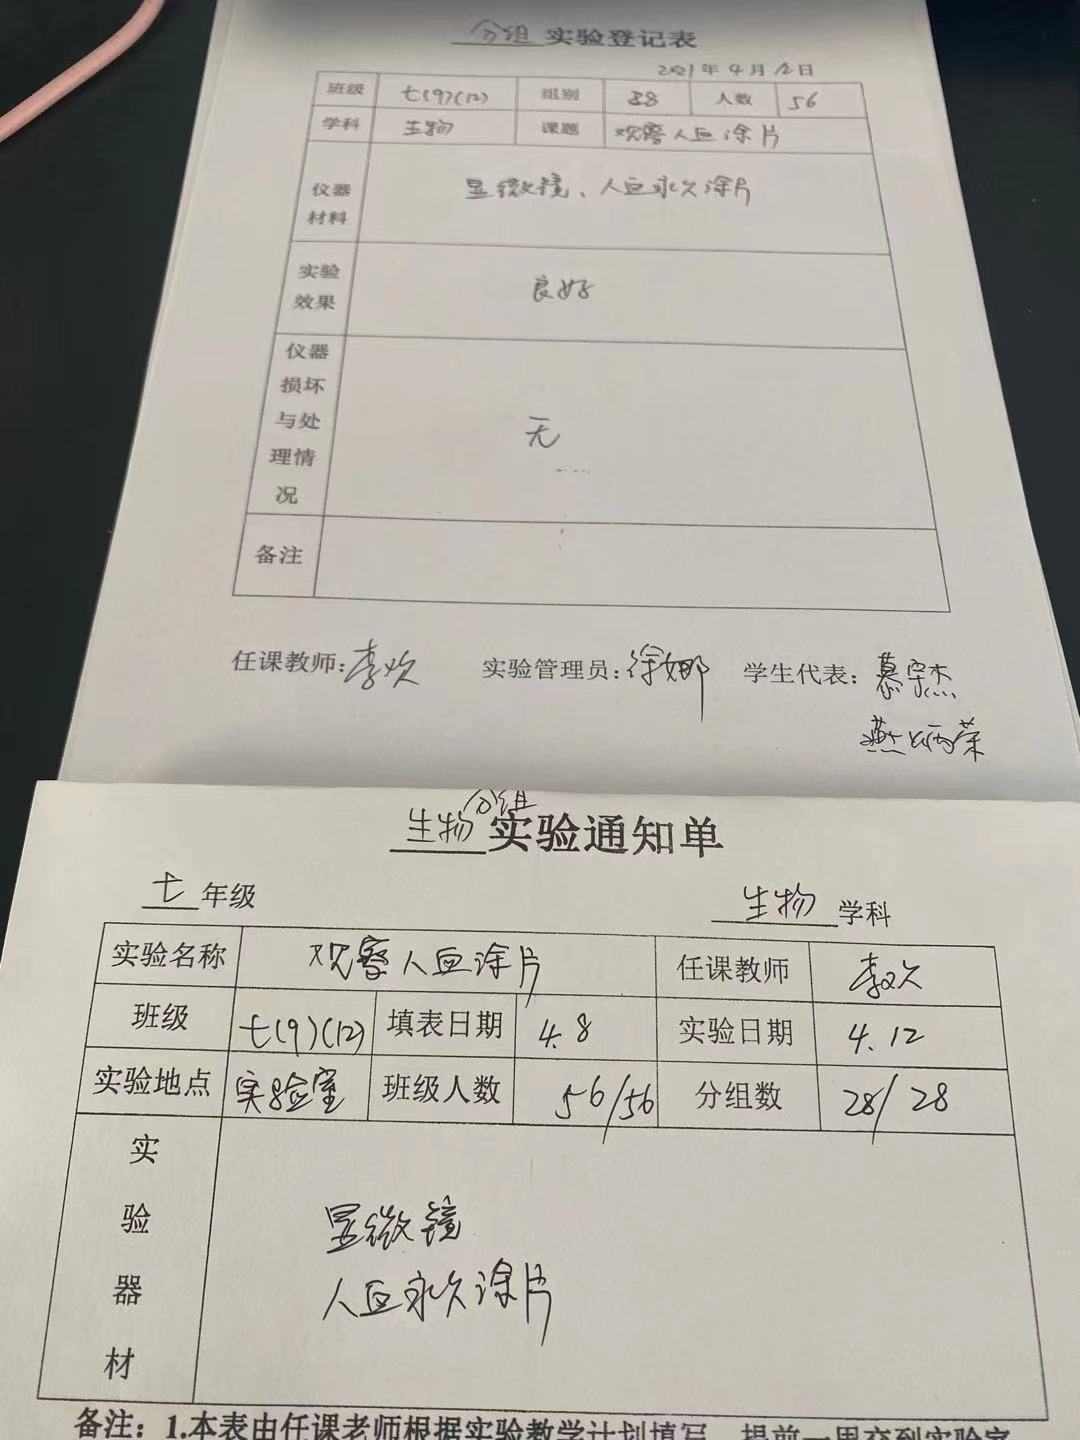 分组 实验登记表
2021年4月12日
班级 七(9)(12) 组别 28 人数 56
学科 生物 课题 观察人血涂片
仪器材料 显微镜、人血永久涂片
实验效果 良好
仪器损坏与处理情况 无
备注
任课教师：李欢 实验管理员：徐娜 学生代表：慕宗杰
燕炳荣
生物 分组 实验通知单
七 年级 生物 学科
实验名称 观察人血涂片 任课教师 李欢
班级 七(9)(12) 填表日期 4.8 实验日期 4.12
实验地点 实验室 班级人数 56/56 分组数 28/28
实验器材 显微镜
人血永久涂片
备注：1.本表由任课老师根据实验教学计划填写，提前一周交到实验室